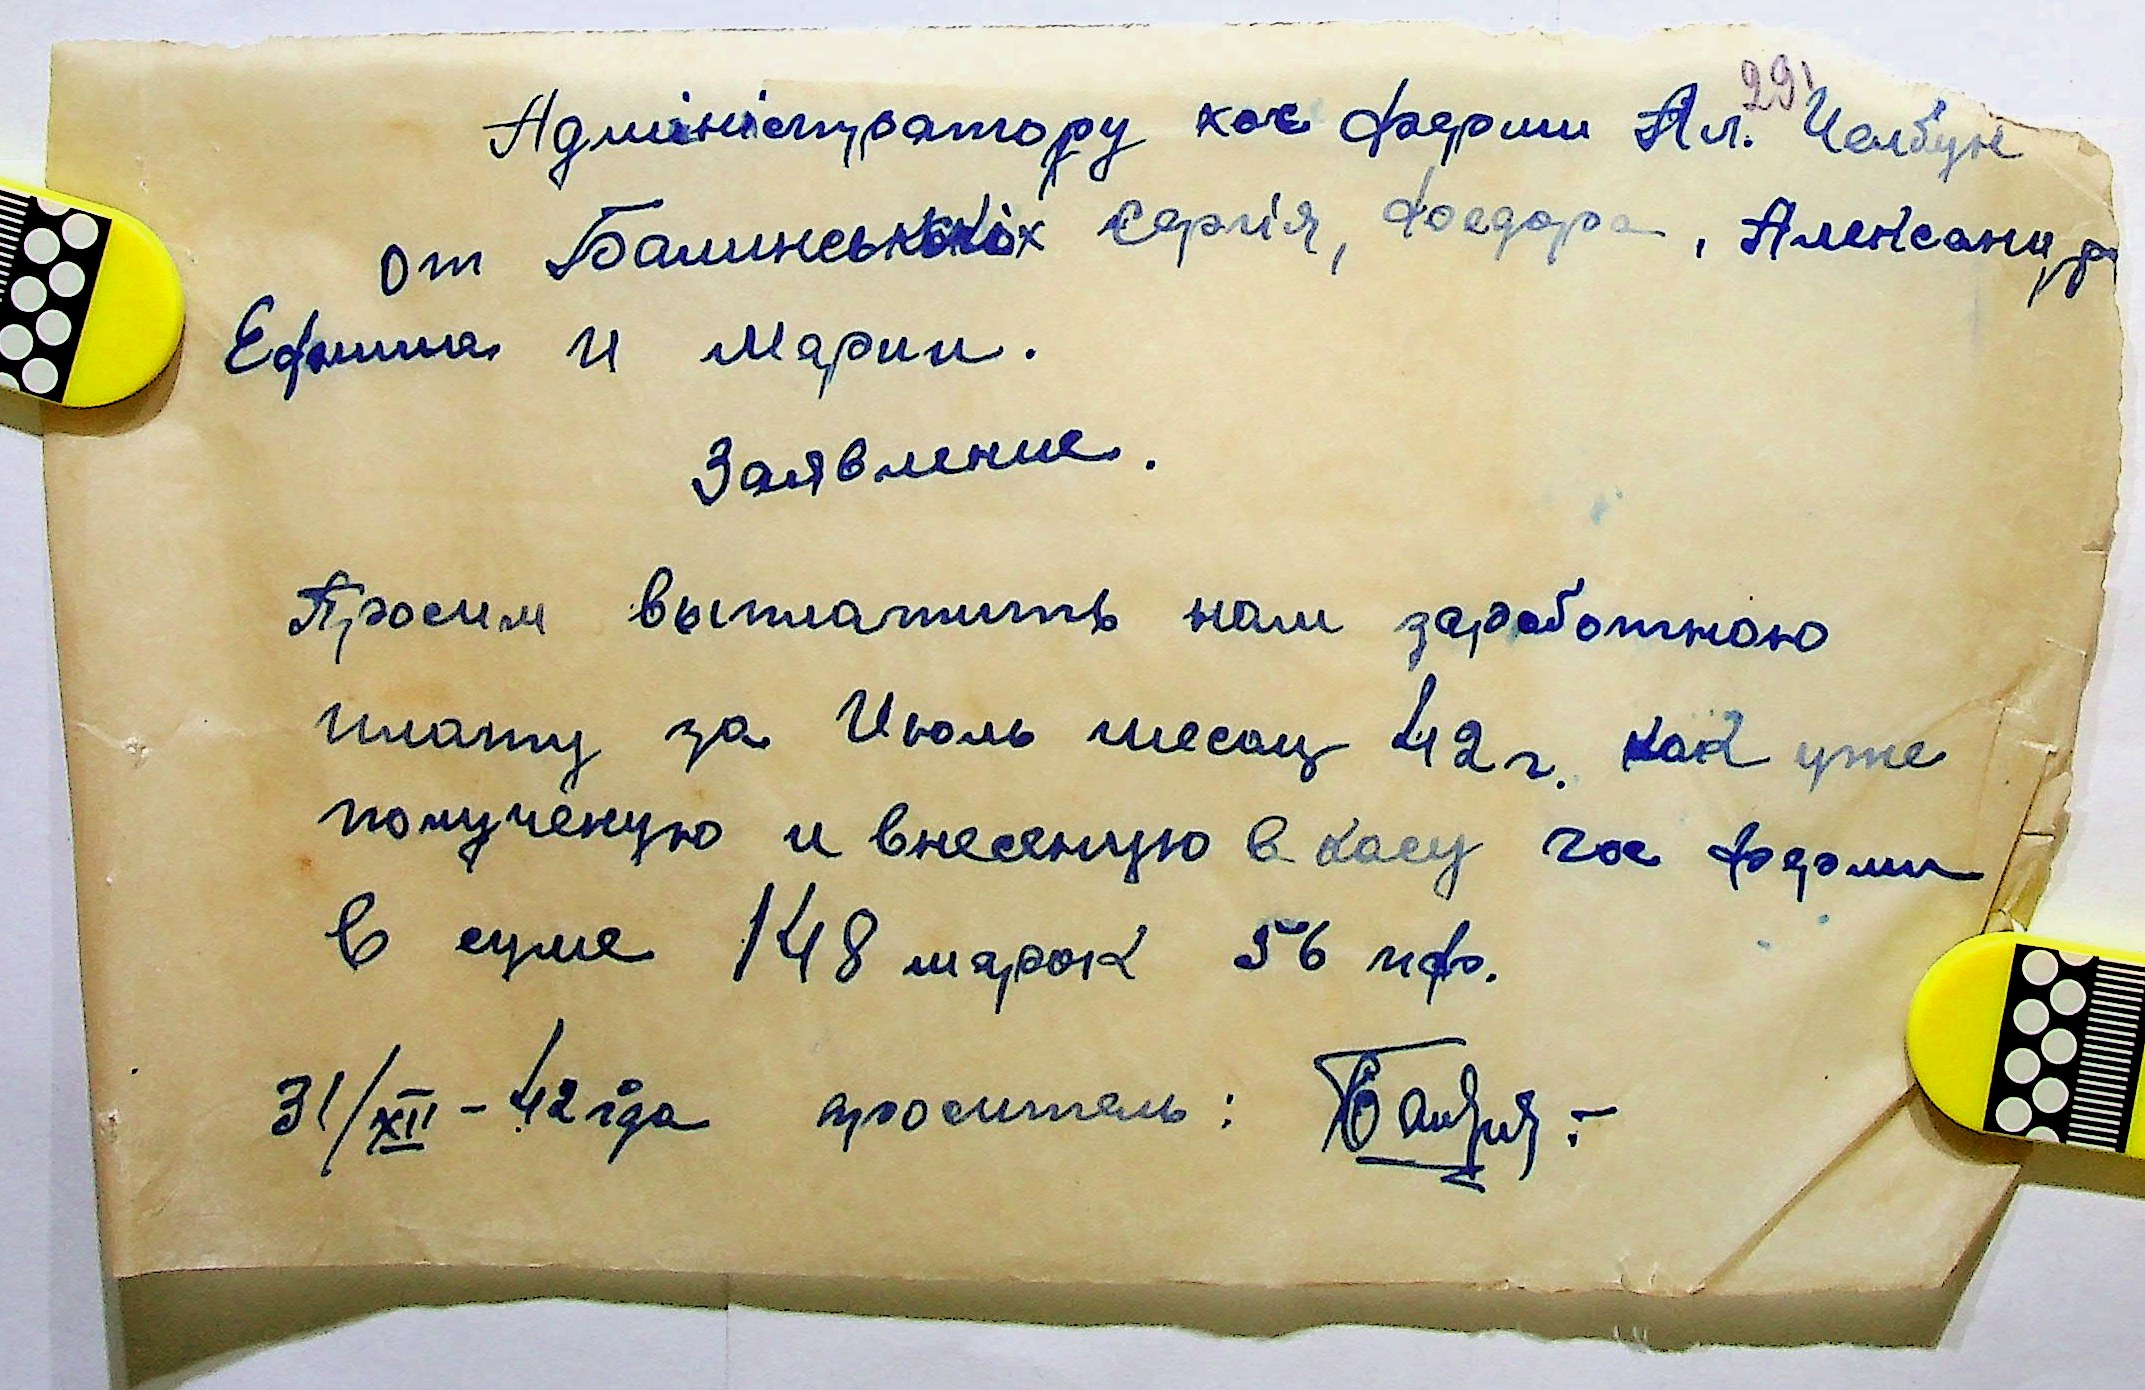 291
Адміністратору хос ферми Ал. Челбун
от Балинських Сергія, Фоедора, Александр
Ефоима и Марии.
Заявление.
Просим выплатить нам заработною
плату за Июль месац 42 г. как уже
получёную и внесеную в касу гос ферми
в суме 148 марок 56 пф.
31/XII - 42 года проситель: